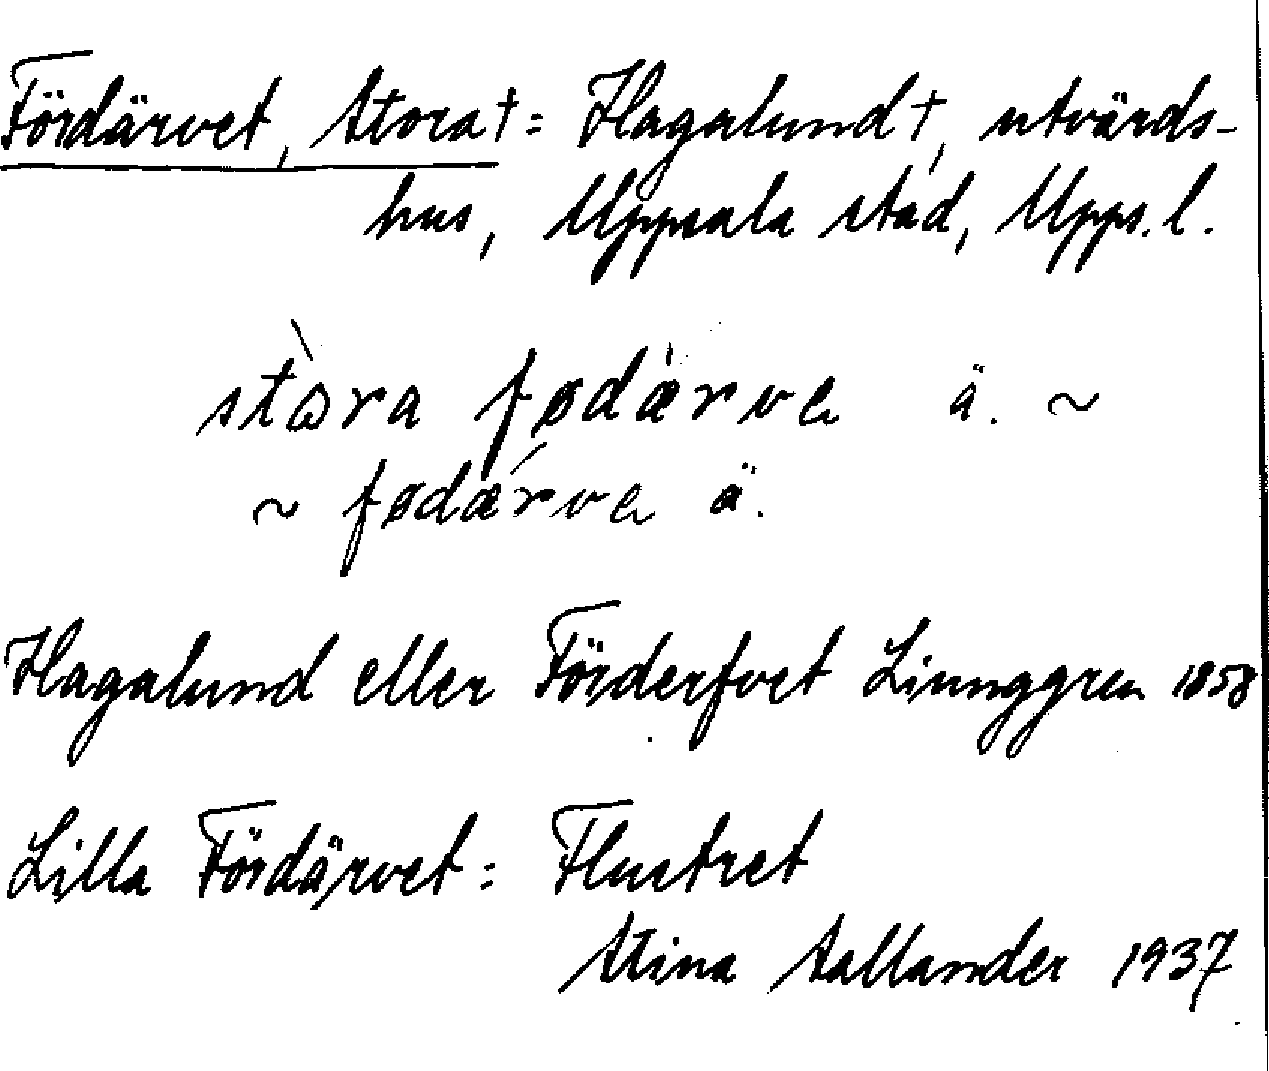 Fördärvet, Stora† = Hagalund†, utvärds-
hus, Uppsala stad, Upps. l.
stòra fødǽrve ä. ~
~ fødǽrve ä.
Hagalund eller Förderfvet Ljunggren 1858
Lilla Fördärvet: Flustret
Stina Sallander 1937